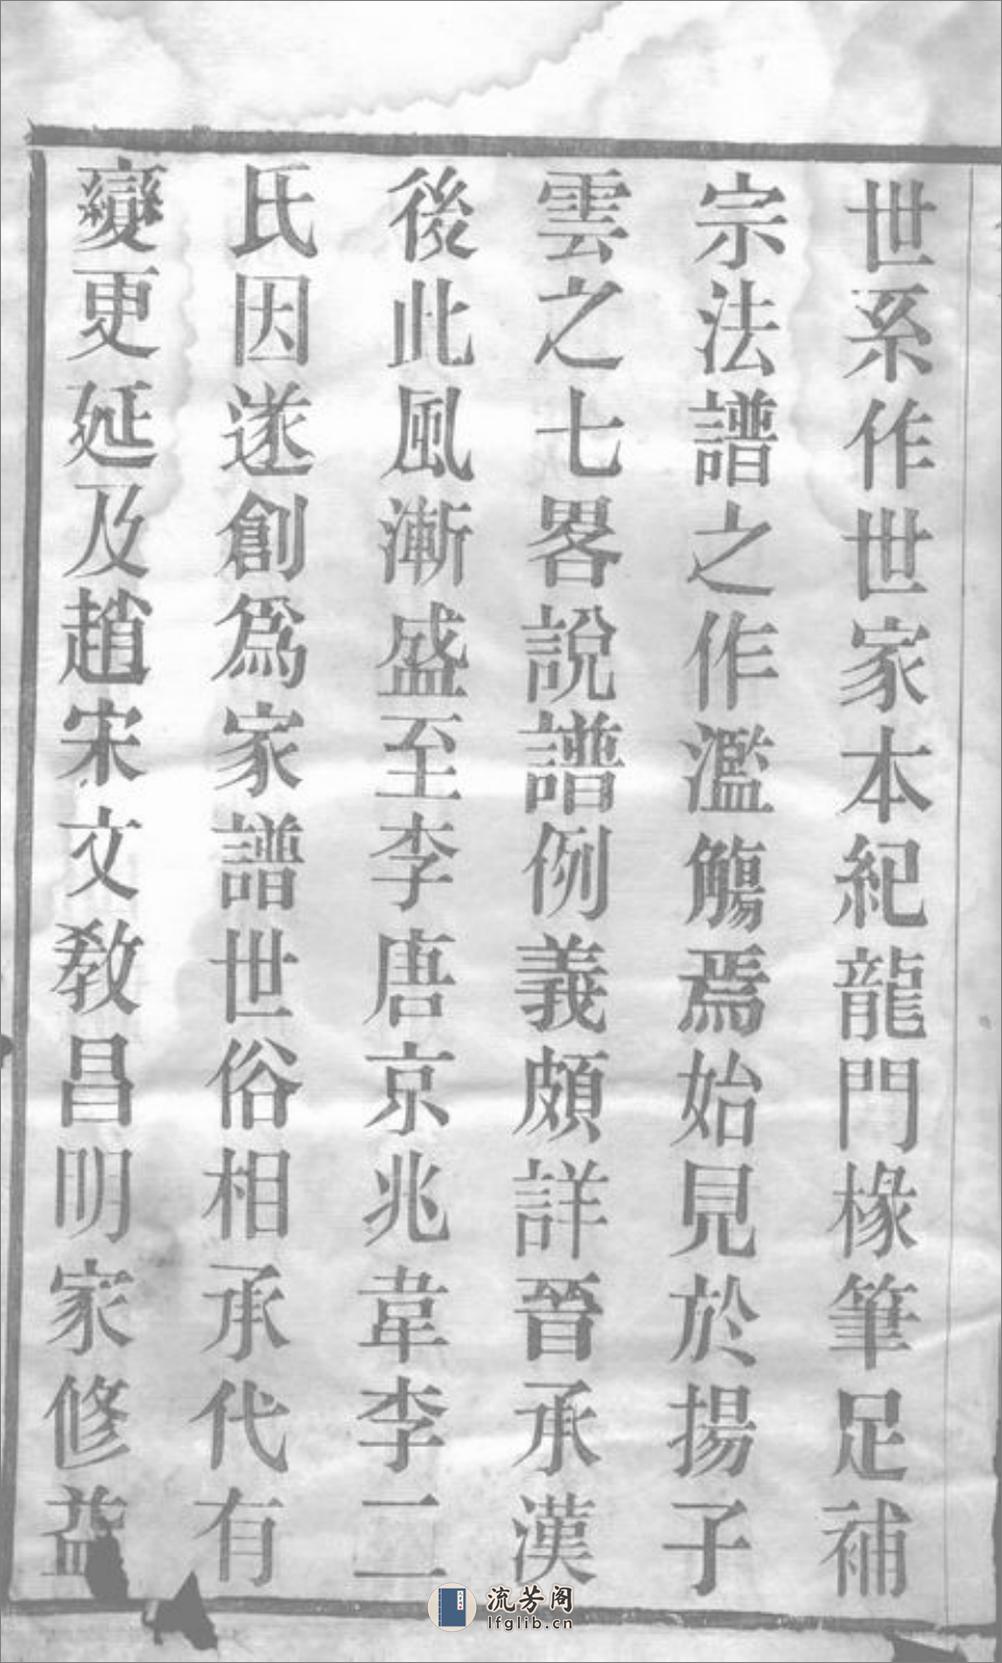 世系作世家本紀龍門椽筆足補
宗法譜之作濫觴焉始見於揚子
雲之七畧說譜例義頗詳晉承漢
後此風漸盛至李唐京兆韋李二
氏因遂創爲家譜世俗相承代有
變更延及趙宋文教昌明家修益
流芳阁
lfglib.cn